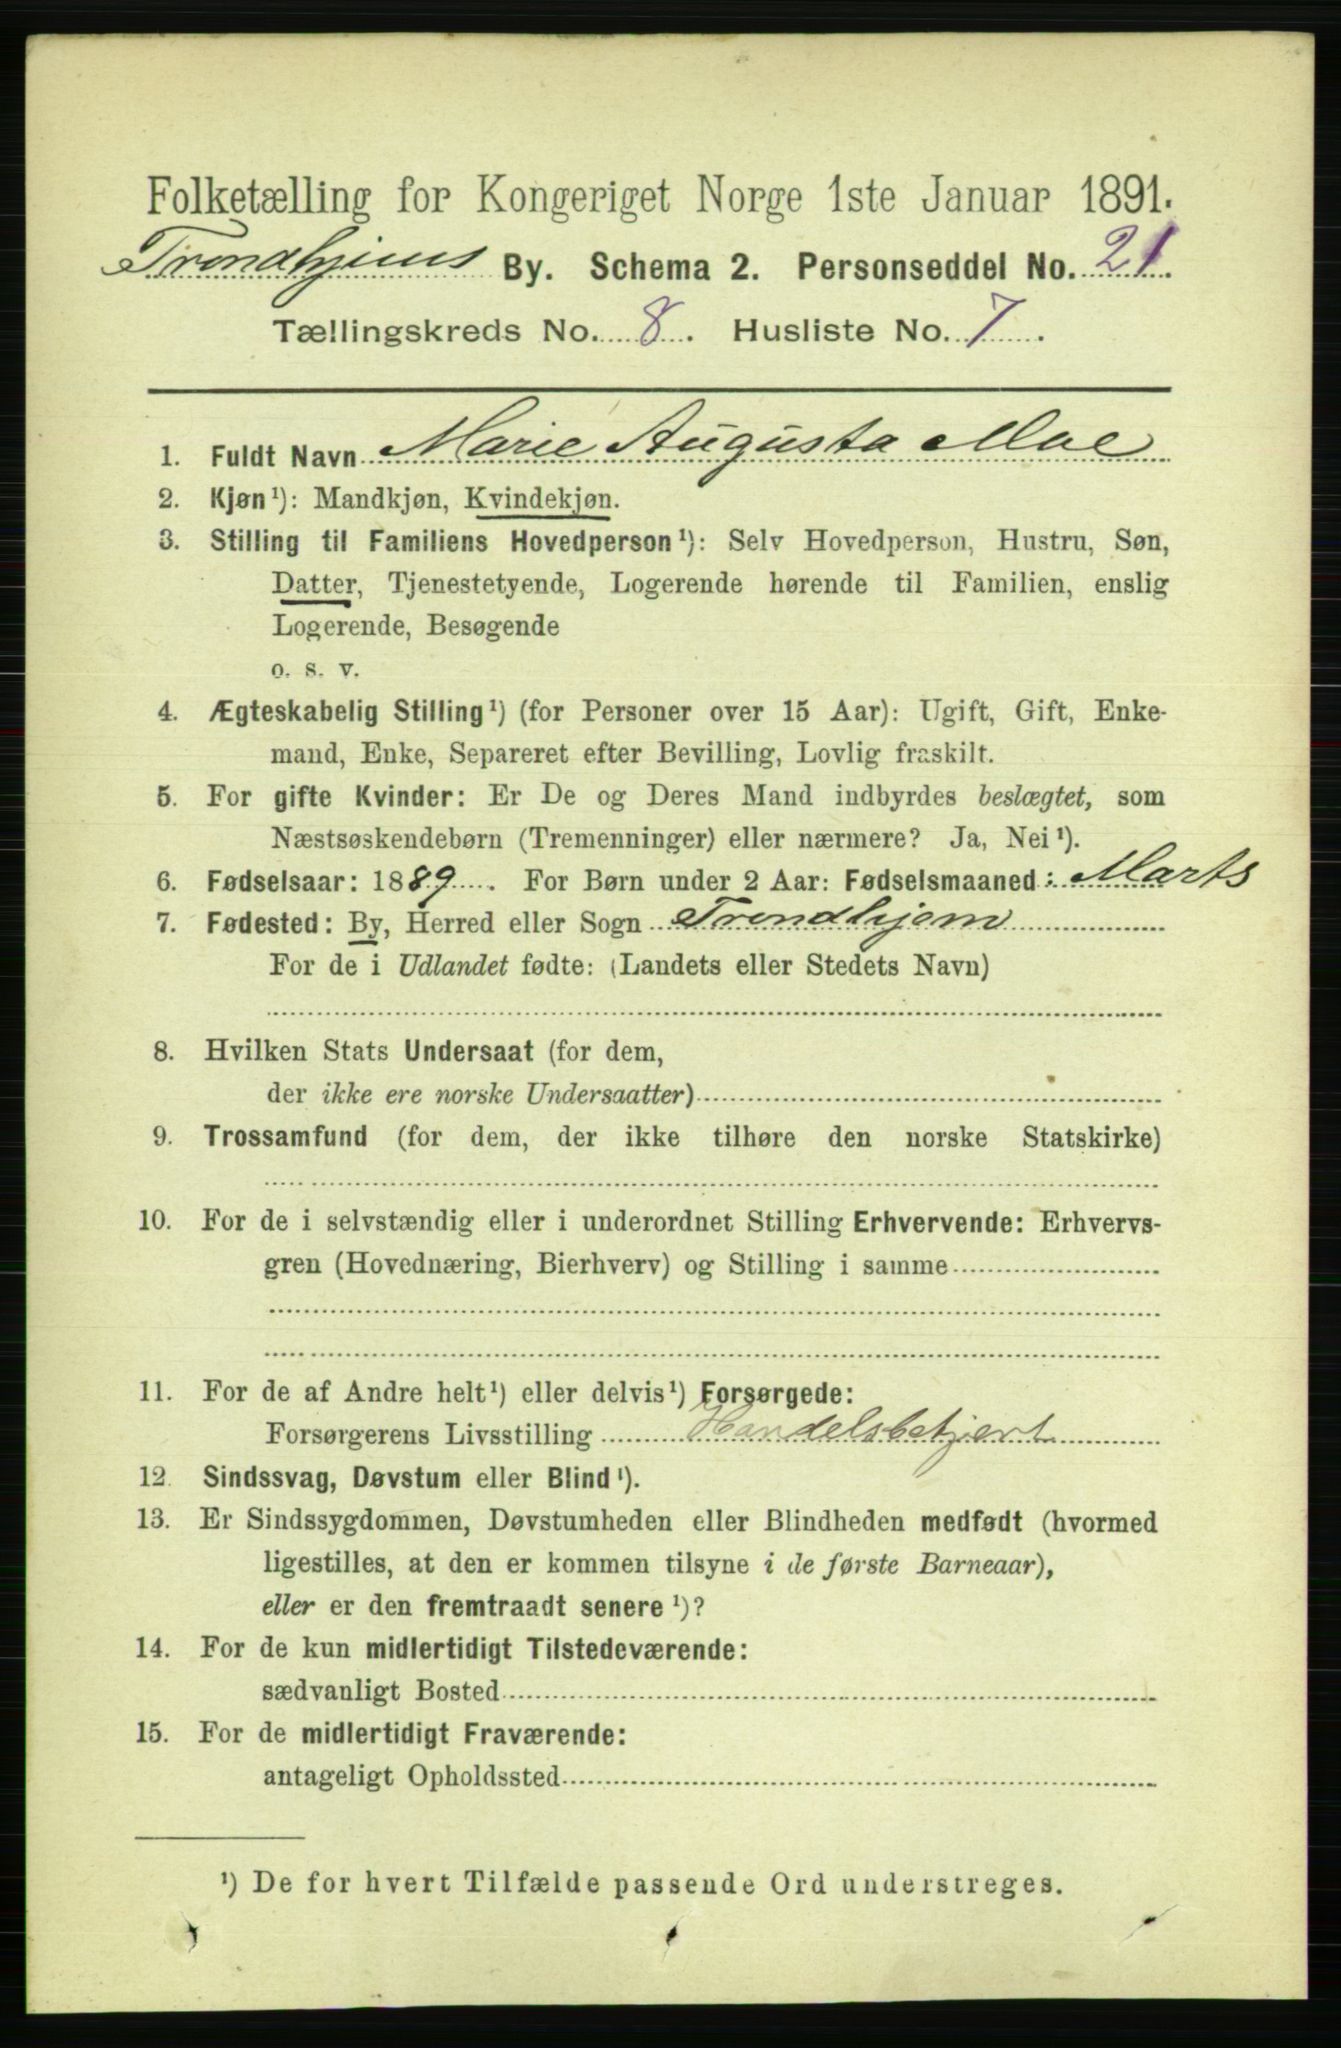 Folketælling for Kongeriget Norge 1ste Januar 1891.
Trondhjems By. Schema 2. Personseddel No. 21.
Tællingskreds No. 8. Husliste No. 7.
1. Fuldt Navn Marie Augusta Moe
2. Kjøn¹): Mandkjøn, Kvindekjøn.
3. Stilling til Familiens Hovedperson¹): Selv Hovedperson, Hustru, Søn,
Datter, Tjenestetyende, Logerende hørende til Familien, enslig
Logerende, Besøgende
o. s. v.
4. Ægteskabelig Stilling¹) (for Personer over 15 Aar): Ugift, Gift, Enke-
mand, Enke, Separeret efter Bevilling, Lovlig fraskilt.
5. For gifte Kvinder: Er De og Deres Mand indbyrdes beslægtet, som
Næstsøskendebørn (Tremenninger) eller nærmere? Ja, Nei¹).
6. Fødselsaar: 1889. For Børn under 2 Aar: Fødselsmaaned: Marts
7. Fødested: By, Herred eller Sogn Trondhjem
For de i Udlandet fødte: (Landets eller Stedets Navn)
8. Hvilken Stats Undersaat (for dem,
der ikke ere norske Undersaatter)
9. Trossamfund (for dem, der ikke tilhøre den norske Statskirke)
10. For de i selvstændig eller i underordnet Stilling Erhvervende: Erhvervs-
gren (Hovednæring, Bierhverv) og Stilling i samme
11. For de af Andre helt¹) eller delvis¹) Forsørgede:
Forsørgerens Livsstilling Handelsbetjent
12. Sindssvag, Døvstum eller Blind¹).
13. Er Sindssygdommen, Døvstumheden eller Blindheden medfødt (hvormed
ligestilles, at den er kommen tilsyne i de første Barneaar),
eller er den fremtraadt senere¹)?
14. For de kun midlertidigt Tilstedeværende:
sædvanligt Bosted
15. For de midlertidigt Fraværende:
antageligt Opholdssted
¹) De for hvert Tilfælde passende Ord understreges.